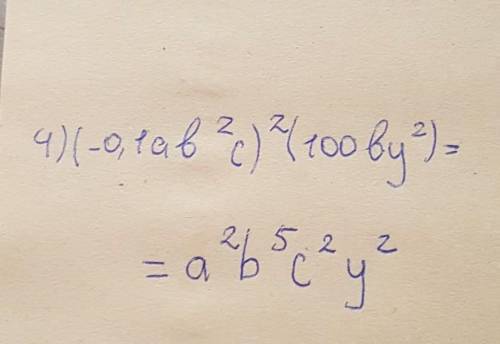 4)(-0,1ab²c)²(100by²)=
=a²b⁵c²y²